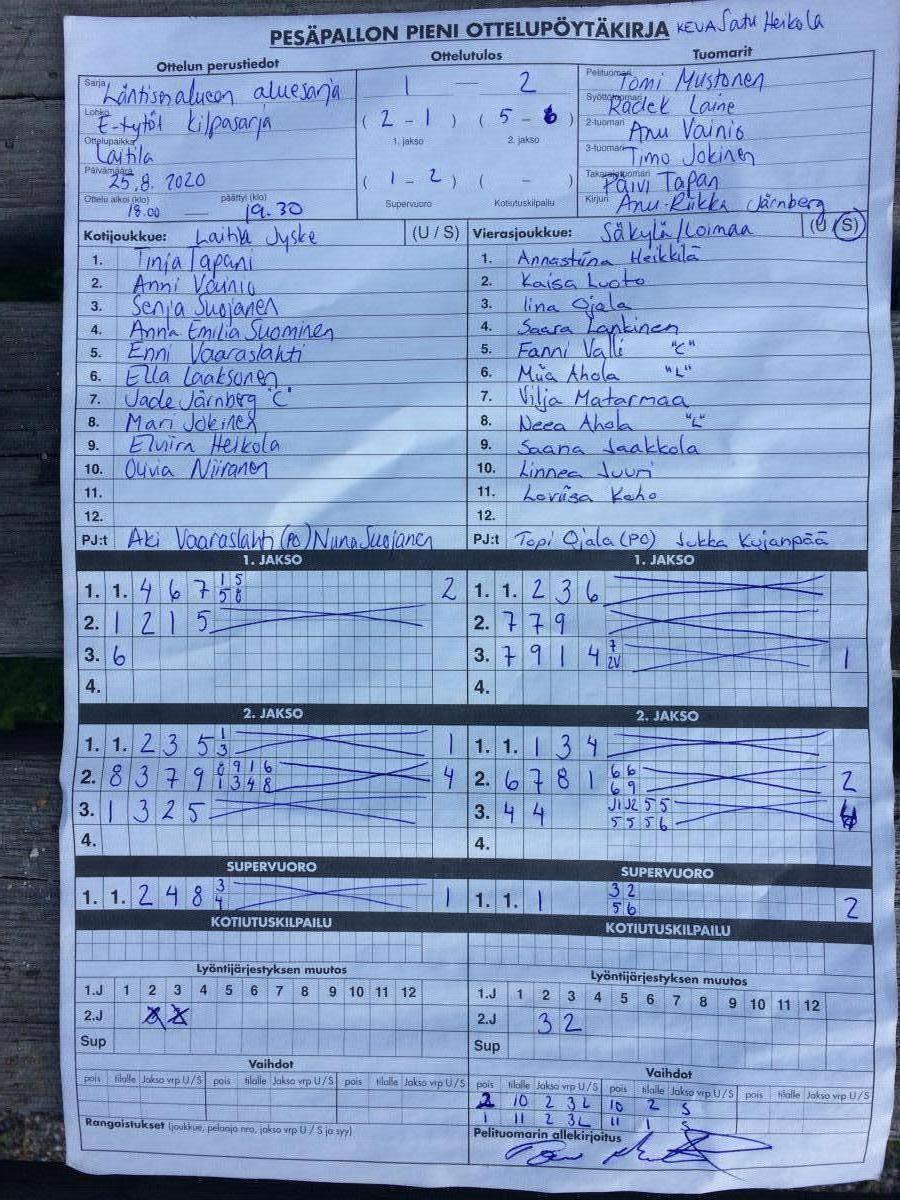 PESÄPALLON PIENI OTTELUPÖYTÄKIRJA KEVA Satu Heikola
Ottelun perustiedot
Sarja Läntisen alueen aluesarja
Lohko E-tytöt kilpasarja
Ottelupaikka Laitila
Päivämäärä 25.8. 2020
Ottelu alkoi (klo) päättyi (klo)
18.00 — 19.30
Ottelutulos
1 — 2
( 2 - 1 ) ( 5 - 6 )
1. jakso 2. jakso
( 1 - 2 ) ( - )
Supervuoro Kotiutuskilpailu
Tuomarit
Pelituomari Tomi Mustonen
Syöttötuomari Radek Laine
2-tuomari Anu Vainio
3-tuomari Timo Jokinen
Takarajatuomari Päivi Tapani
Kirjuri Anu-Riikka Järnberg
Kotijoukkue: Laitila Jyske (U / S)
1. Tinja Tapani
2. Anni Vainio
3. Senja Suojanen
4. Anna Emilia Suominen
5. Enni Vaaraslahti
6. Ella Laaksonen
7. Jade Järnberg "C"
8. Mari Jokinen
9. Elviira Heikola
10. Olivia Niiranen
11.
12.
PJ:t Aki Vaaraslahti (PO) Niina Suojanen
Vierasjoukkue: Säkylä/Loimaa (U / S)
1. Annastiina Heikkilä
2. Kaisa Luoto
3. Iina Ojala
4. Saara Lankinen
5. Fanni Valli "C"
6. Miia Ahola "L"
7. Vilja Matarmaa
8. Neea Ahola "L"
9. Saana Jaakkola
10. Linnea Juuri
11. Loviisa Keho
12.
PJ:t Topi Ojala (PO) Jukka Kujanpää
1. JAKSO
1. 1. 4 6 7 1 5 2
5 8
2. 1 2 1 5
3. 6
4.
1. JAKSO
1. 1. 2 3 6
2. 7 7 9
3. 7 9 1 4 7 1
2V
4.
2. JAKSO
1. 1. 2 3 5 1 1
3
2. 8 3 7 9 8 9 1 6 4
1 3 4 8
3. 1 3 2 5
4.
2. JAKSO
1. 1. 1 3 4
2. 6 7 8 1 6 6 2
6 9
3. 4 4 J1 J2 5 5 4
5 5 5 6
4.
SUPERVUORO
1. 1. 2 4 8 3 1
4
SUPERVUORO
1. 1. 1 3 2 2
5 6
KOTIUTUSKILPAILU
KOTIUTUSKILPAILU
Lyöntijärjestyksen muutos
1.J 1 2 3 4 5 6 7 8 9 10 11 12
2.J
Sup
Lyöntijärjestyksen muutos
1.J 1 2 3 4 5 6 7 8 9 10 11 12
2.J 3 2
Sup
Vaihdot
pois tilalle Jakso vrp U / S pois tilalle Jakso vrp U / S pois tilalle Jakso vrp U / S
Rangaistukset (joukkue, pelaaja nro, jakso vrp U / S ja syy)
Vaihdot
pois tilalle Jakso vrp U / S pois tilalle Jakso vrp U / S pois tilalle Jakso vrp U / S
2 10 2 3 L 10 2 S
1 11 2 3 L 11 1 S
Pelituomarin allekirjoitus